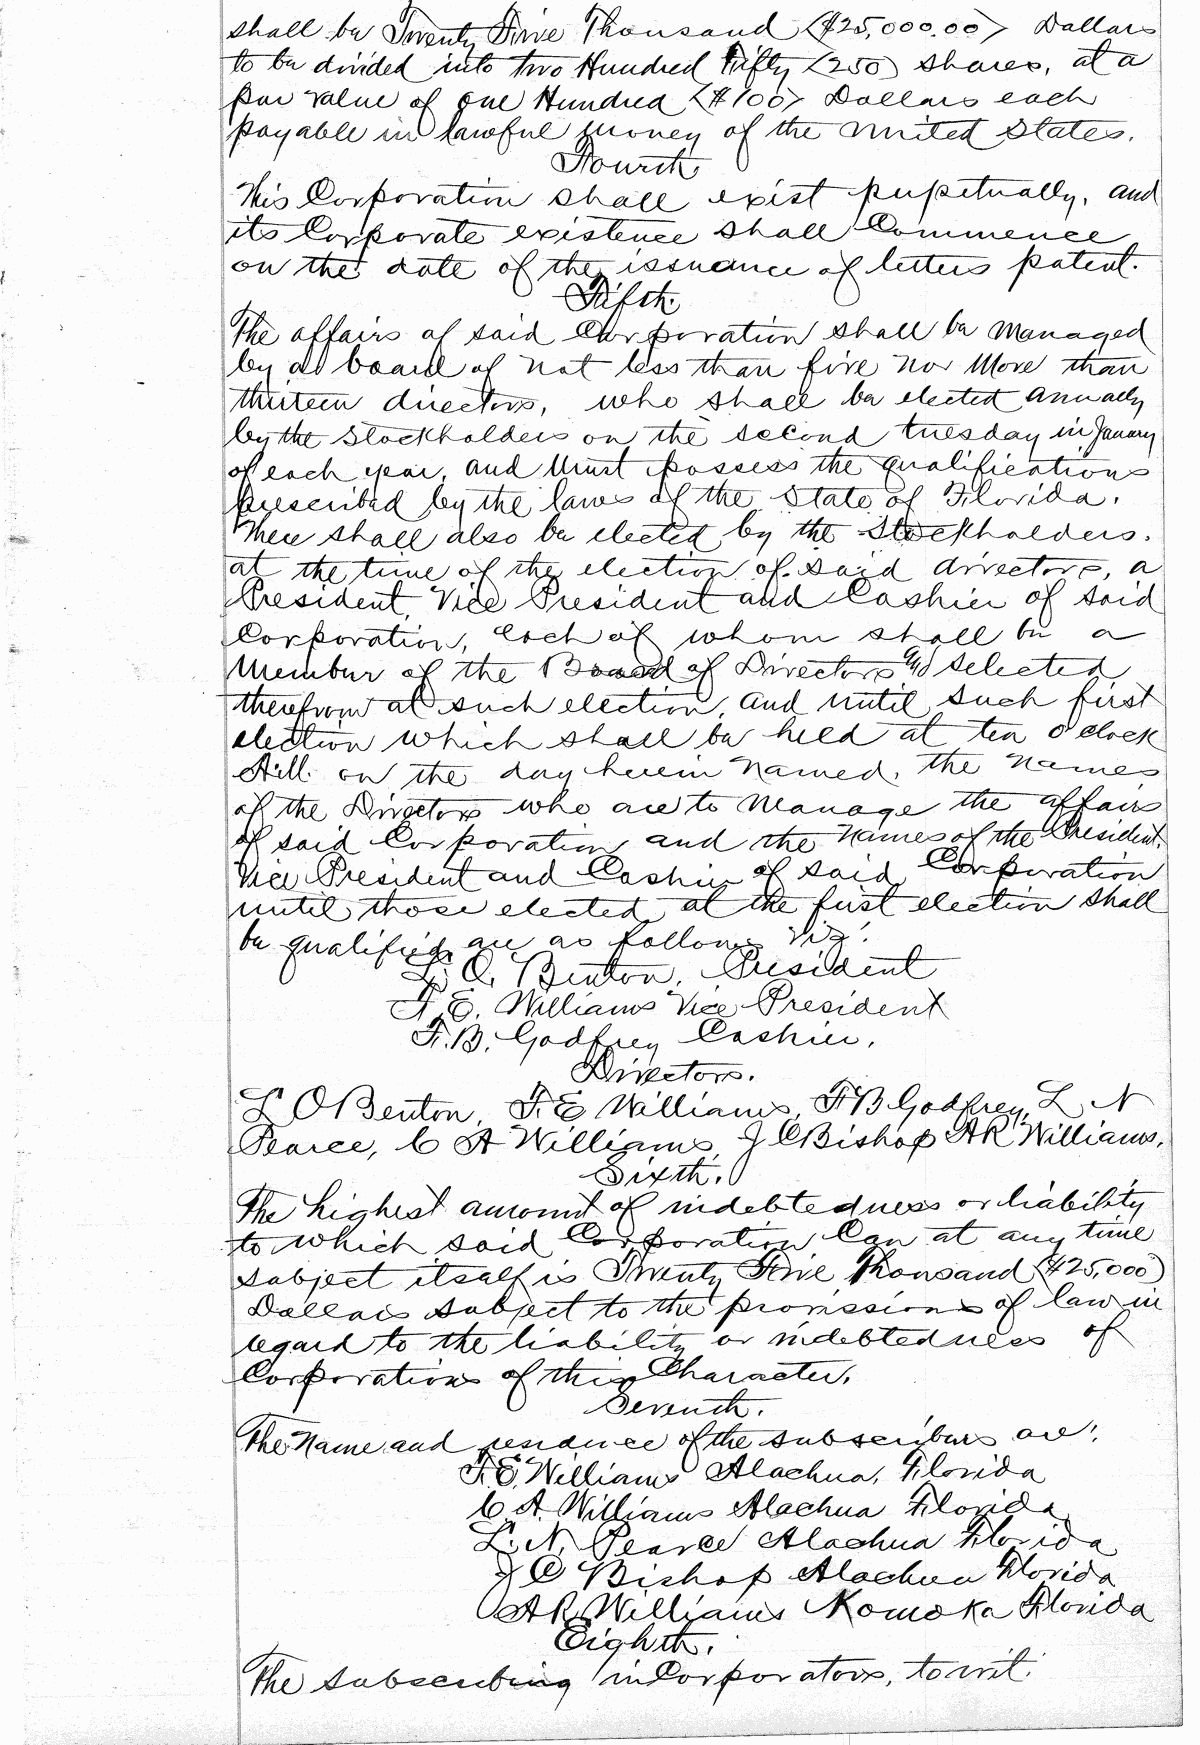 shall be Twenty Five Thousand ($25,000.00) Dollars
to be divided into two Hundred Fifty (250) shares, at a
par value of one Hundred ($100) Dollars each
payable in lawful money of the United States.
Fourth.
This Corporation shall exist perpetually, and
its Corporate existence shall Commence
on the date of the issuance of letters patent.
Fifth.
The affairs of said Corporation shall be managed
by a board of not less than five nor more than
thirteen directors, who shall be elected annually
by the Stockholders on the second tuesday in January
of each year, and must possess the qualifications
prescribed by the laws of the State of Florida.
There shall also be elected by the Stockholders.
at the time of the election of said directors, a
President, Vice President and Cashier of said
Corporation, each of whom shall be a
member of the Board of Directors and selected
therefrom at such election, and until such first
election which shall be held at ten o'clock
A.M. on the day herein named, the names
of the Directors who are to manage the affairs
of said Corporation and the names of the President,
Vice President and Cashier of said Corporation
until those elected at the first election shall
be qualified are as follows viz:
L. O. Benton, President
F. E. Williams Vice President
F. B. Godfrey Cashier.
Directors.
L O Benton, F. E Williams, F B Godfrey, L N
Pearce, C A Williams, J C Bishop A R Williams.
Sixth.
The highest amount of indebtedness or liability
to which said Corporation Can at any time
subject itself is Twenty Five Thousand ($25,000)
Dollars subject to the provissions of law in
regard to the liability or indebtedness of
Corporations of this Character.
Seventh.
The Name and residence of the subscribers are:
F. E. Williams Alachua, Florida
C A. Williams Alachua Florida
L. N. Pearce Alachua Florida
J C Bishop Alachua Florida
A R Williams Komoka Florida
Eighth.
The subscribing inCorporators, to wit: